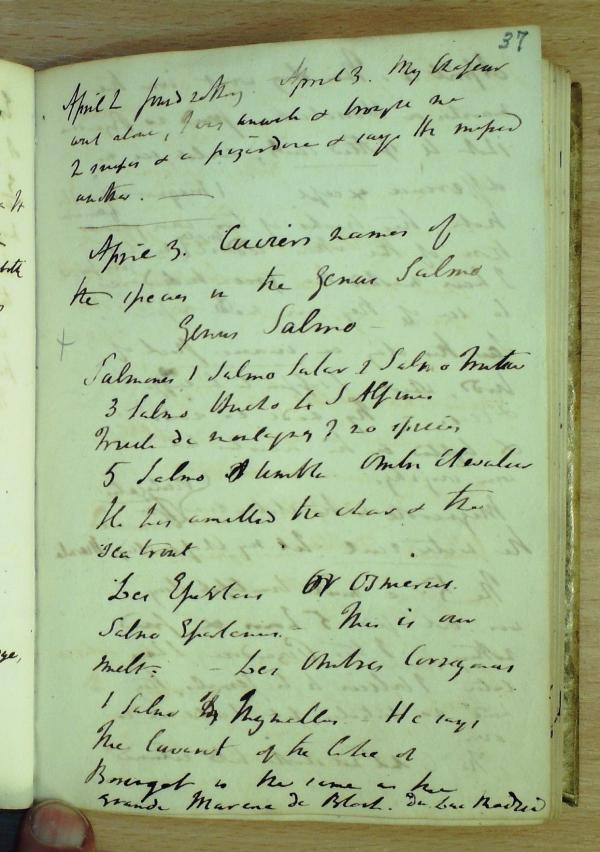 37
April 2 April 3. My Chasseur
went alone, I was unwell & brought me
2 snipes & a & says He missed
another.
April 3. Cuviers names of
the species in the Genus Salmo
Genus Salmo
Salmones 1 Salmo Salar 2 Salmo Trutta
3 Salmo Hucho 4 S Alpinus
Truite de montagne? no species
5 Salmo Umbla Ombre Chevalier
He has omitted the char & the
sea trout
Les Eperlans or Osmerus.
Salmo Eperlanus. This is our
smelt. - Les Ombres Corregonus
1 Salmo Thymallus He says
The Lavaret of the lake of
Bourget is the same as the
grande Marene de Bloch. du Lac